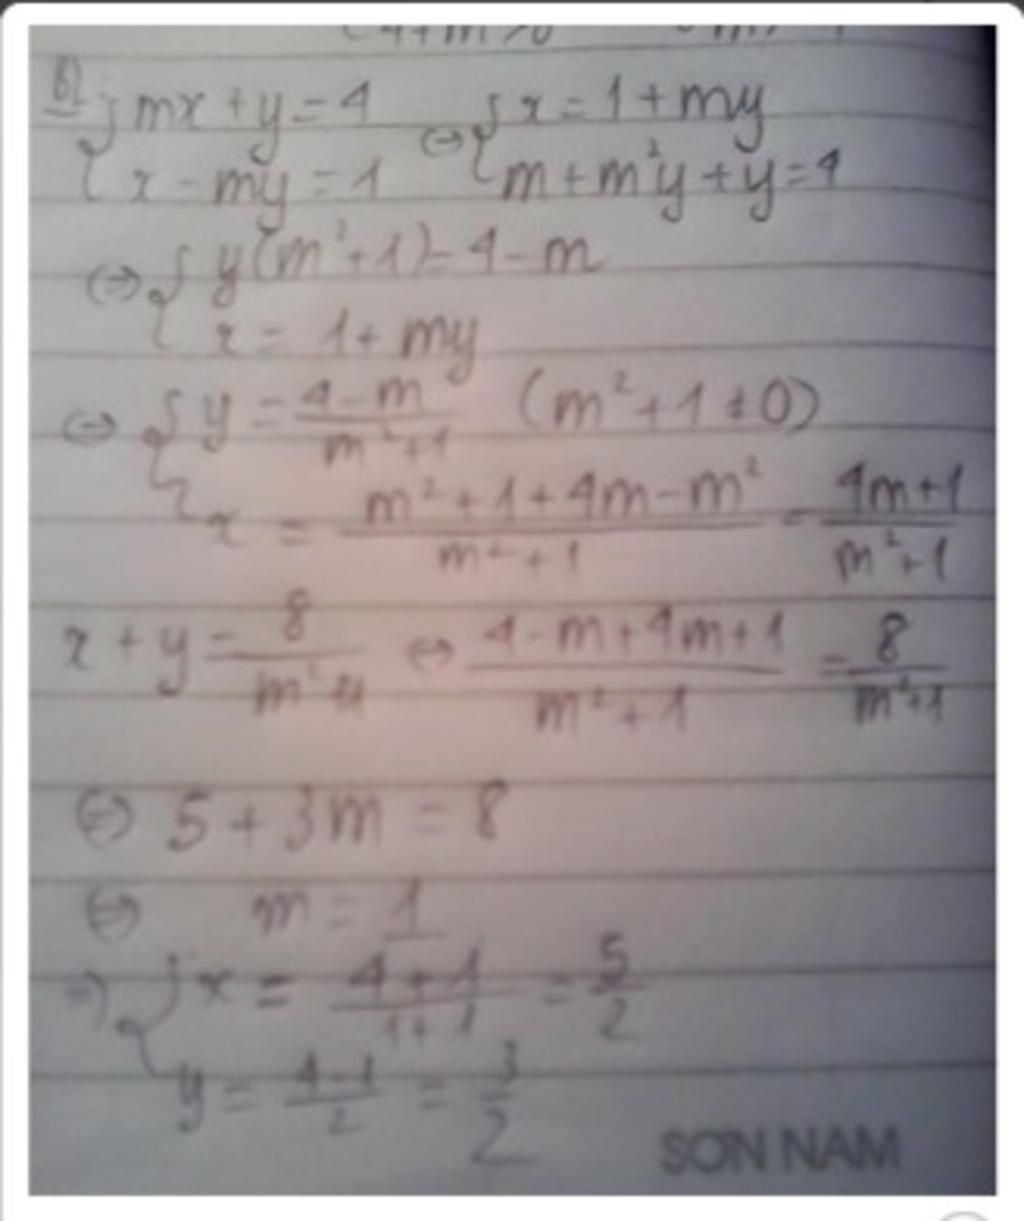 4+m>0
b) { mx + y = 4 ⇔ { x = 1 + my
{ x - my = 1 { m + m²y + y = 4
⇔ { y(m² + 1) = 4 - m
{ x = 1 + my
⇔ { y = (4 - m)/(m² + 1) (m² + 1 ≠ 0)
{ x = (m² + 1 + 4m - m²)/(m² + 1) = (4m + 1)/(m² + 1)
x + y = 8/(m² + 1) ⇔ (4 - m + 4m + 1)/(m² + 1) = 8/(m² + 1)
⇔ 5 + 3m = 8
⇔ m = 1
⇒ { x = (4 + 1)/(1 + 1) = 5/2
{ y = (4 - 1)/2 = 3/2
SON NAM